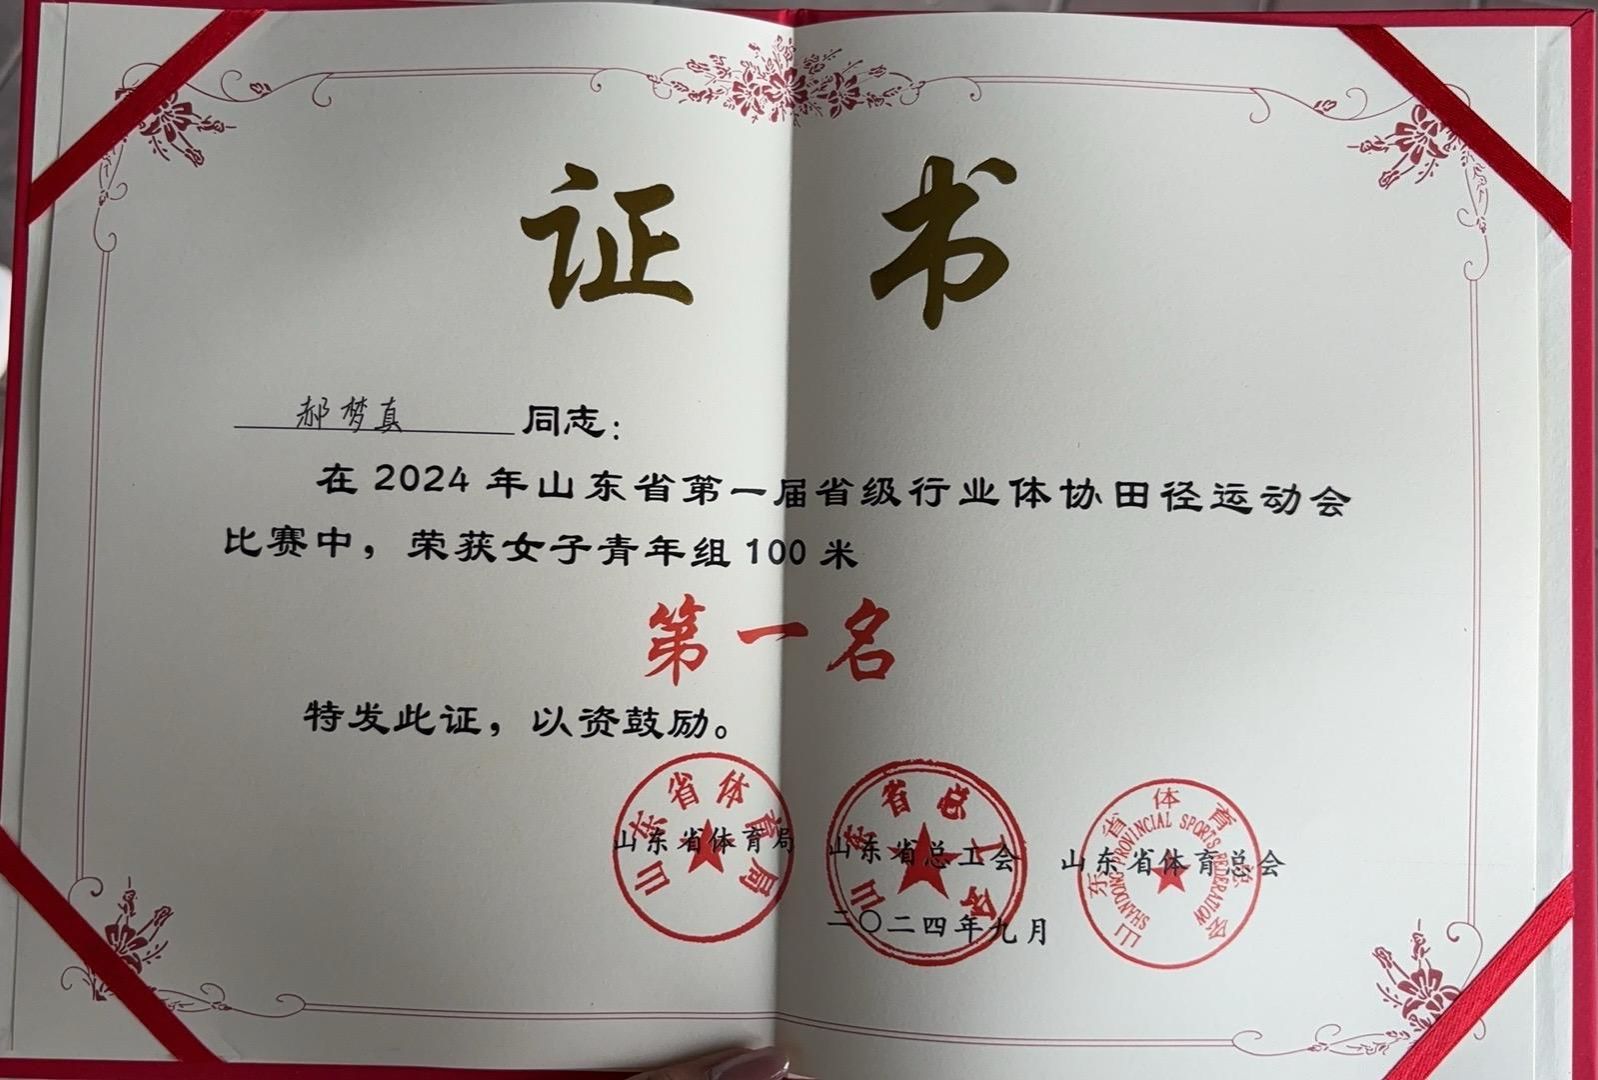 证书
郝梦真 同志：
在2024年山东省第一届省级行业体协田径运动会
比赛中，荣获女子青年组100米
第一名
特发此证，以资鼓励。
山东省体育局 山东省总工会 山东省体育总会
二〇二四年九月
山东省体育局
山东省总工会
山东省体育总会
SHANDONG PROVINCIAL SPORTS FEDERATION